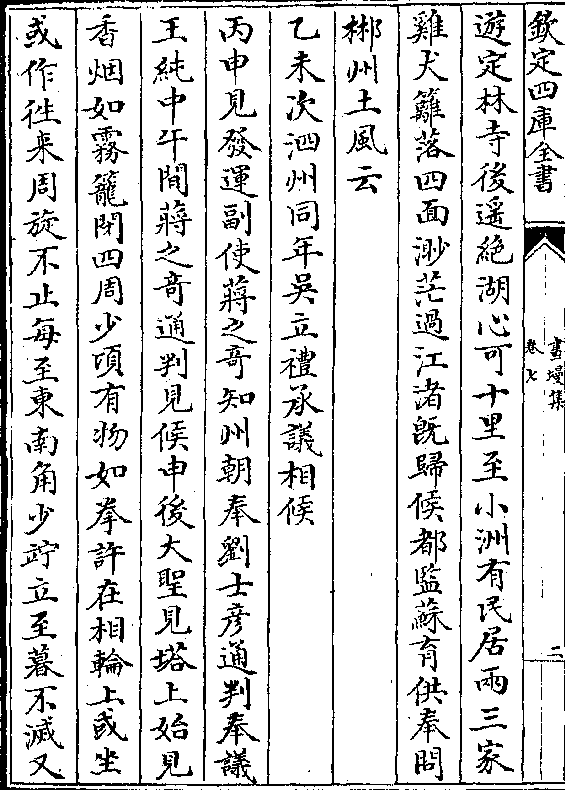 欽定四庫全書
畫墁集
卷七
二
遊定林寺後遥絶湖心可十里至小洲有民居兩三家
雞犬籬落四面渺茫過江渚旣歸候都監蘇育供奉問
郴州土風云
乙未次泗州同年吳立禮承議相候
丙申見發運副使蔣之竒知州朝奉劉士彦通判奉議
王純中午間蔣之竒通判見候申後大聖見塔上始見
香烟如霧籠閉四周少頃有物如拳許在相輪上或坐
或作徃来周旋不止每至東南角少竚立至暮不滅又